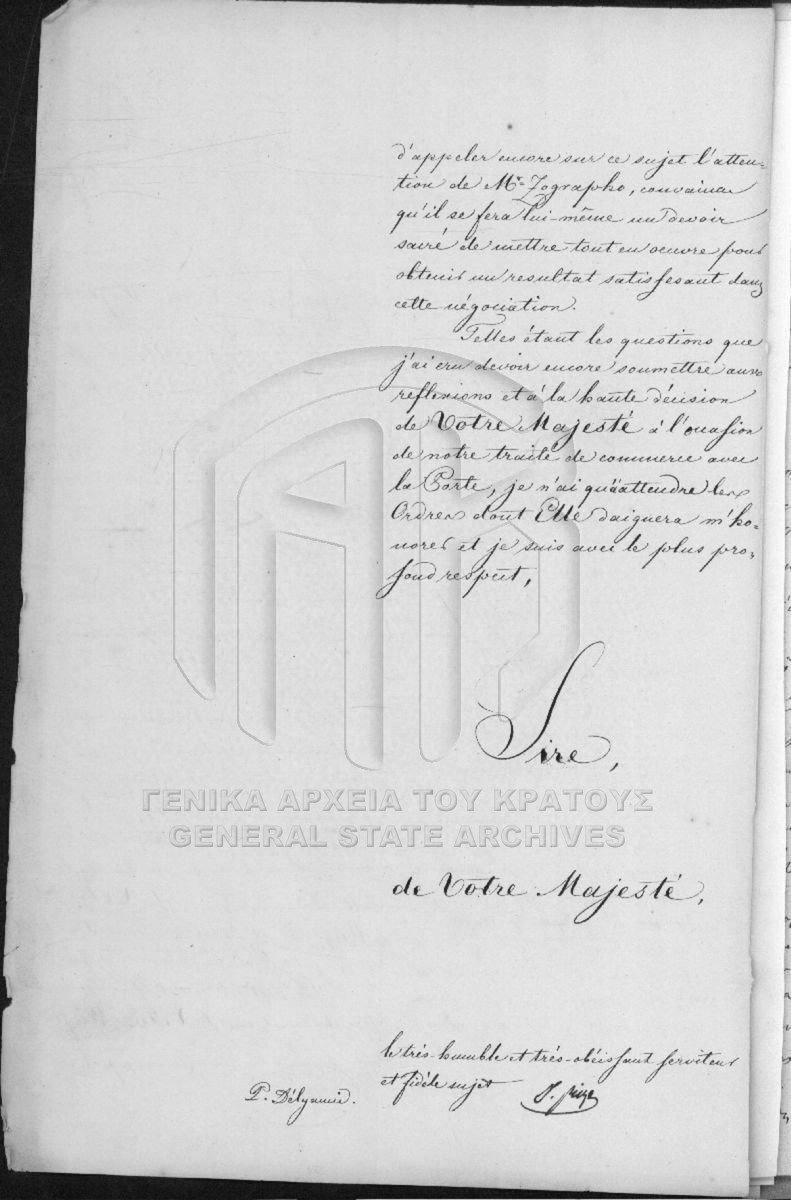 d'appeler encore sur ce sujet l'atten-
tion de Mr. Zographo, convaincu
qu'il se fera lui-même un devoir
sacré de mettre tout en oeuvre pour
obtenir un resultat satisfesant dans
cette négociation.
Telles étant les questions que
j'ai cru devoir encore soumettre aux
reflexions et à la haute décision
de Votre Majesté à l'occasion
de notre traité de commerce avec
la Porte, je n'ai qu'à attendre les
Ordres dont Elle daignera m'ho-
norer et je suis avec le plus pro-
fond respect,
Sire,
ΓΕΝΙΚΑ ΑΡΧΕΙΑ ΤΟΥ ΚΡΑΤΟΥΣ
GENERAL STATE ARCHIVES
de Votre Majesté,
le très-humble et très-obéissant serviteur
et fidèle sujet
P. Délyanni.